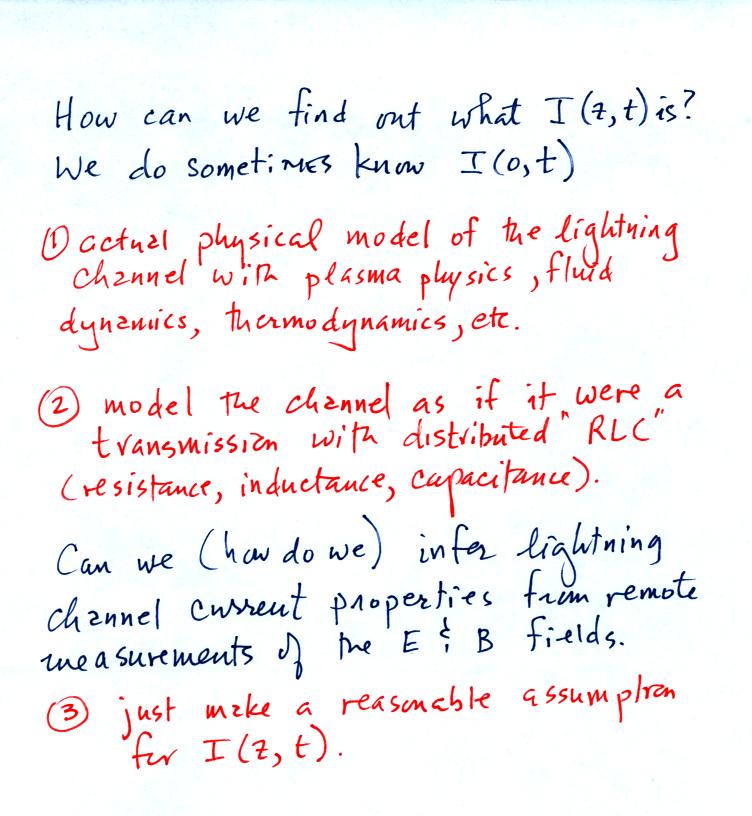 How can we find out what I(z,t) is?
We do sometimes know I(0,t)
① actual physical model of the lightning
channel with plasma physics, fluid
dynamics, thermodynamics, etc.
② model the channel as if it were a
transmission with distributed "RLC"
(resistance, inductance, capacitance).
Can we (how do we) infer lightning
channel current properties from remote
measurements of the E & B fields.
③ just make a reasonable assumption
for I(z,t).